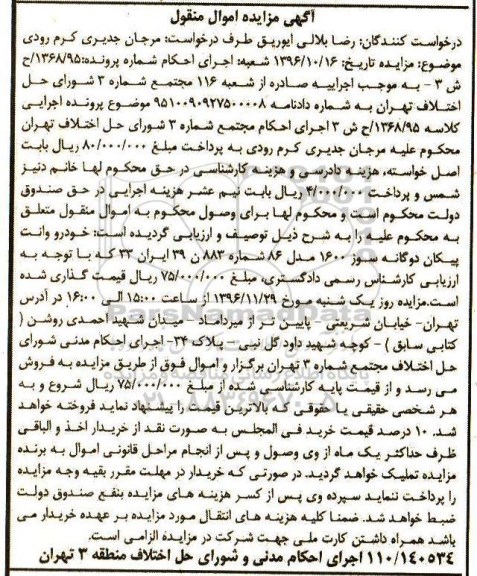 آگهی مزایده اموال منقول
درخواست کنندگان: رضا بلالی ایوریق طرف درخواست: مرجان جدیری کرم رودی
موضوع: مزایده تاریخ: ۱۳۹۶/۱۰/۱۶ شعبه: اجرای احکام شماره پرونده:۱۳۶۸/۹۵/ح
ش ۳ - به موجب اجراییه صادره از شعبه ۱۱۶ مجتمع شماره ۳ شورای حل
اختلاف تهران به شماره دادنامه ۹۵۱۰۰۹۰۹۲۷۵۰۰۰۰۸ موضوع پرونده اجرایی
کلاسه ۱۳۶۸/۹۵/ح ش ۳ اجرای احکام مجتمع شماره ۳ شورای حل اختلاف تهران
محکوم علیه مرجان جدیری کرم رودی به پرداخت مبلغ ۸۰/۰۰۰/۰۰۰ ریال بابت
اصل خواسته، هزینه دادرسی و هزینه کارشناسی در حق محکوم لها خانم دنیز
شمس و پرداخت ۴/۰۰۰/۰۰۰ ریال بابت نیم عشر هزینه اجرایی در حق صندوق
دولت محکوم است و محکوم لها برای وصول محکوم به اموال منقول متعلق
به محکوم علیه را به شرح ذیل توصیف و ارزیابی گردیده است: خودرو وانت
پیکان دوگانه سوز ۱۶۰۰ مدل ۸۶ شماره ۸۸۳ ن ۳۹ ایران ۳۳ که با توجه به
ارزیابی کارشناس رسمی دادگستری، مبلغ ۷۵/۰۰۰/۰۰۰ ریال قیمت گذاری شده
است.مزایده روز یک شنبه مورخ ۱۳۹۶/۱۱/۲۹ از ساعت ۱۵:۰۰ الی ۱۶:۰۰ در آدرس
تهران- خیابان شریعتی - پایین تر از میرداماد - میدان شهید احمدی روشن (
کتابی سابق ) - کوچه شهید داود گل نبی - پلاک ۳۴- اجرای احکام مدنی شورای
حل اختلاف مجتمع شماره ۳ تهران برگزار و اموال فوق از طریق مزایده به فروش
می رسد و از قیمت پایه کارشناسی شده از مبلغ ۷۵/۰۰۰/۰۰۰ ریال شروع و به
هر شخصی حقیقی یا حقوقی که بالاترین قیمت را پیشنهاد نماید فروخته خواهد
شد. ۱۰ درصد قیمت خرید فی المجلس به صورت نقد از خریدار اخذ و الباقی
ظرف حداکثر یک ماه از وی وصول و پس از انجام مراحل قانونی اموال به برنده
مزایده تملیک خواهد گردید. در صورتی که خریدار در مهلت مقرر بقیه وجه مزایده
را پرداخت ننماید سپرده وی پس از کسر هزینه های مزایده بنفع صندوق دولت
ضبط خواهد شد. ضمنا کلیه هزینه های انتقال مورد مزایده بر عهده خریدار می
باشد همراه داشتن کارت ملی جهت شرکت در مزایده الزامی است.
۱۱۰/۱۴۰۵۳۴ اجرای احکام مدنی و شورای حل اختلاف منطقه ۳ تهران
ParsNamadData
۰۲۱-۸۸۳۴۹۶۷۰-۵